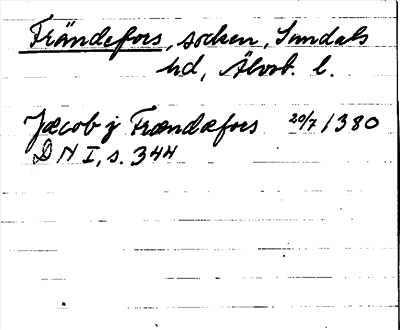 Frändefors, socken, Sundals
hd, Älvsb. l.
Jæcob j Frændæfors 20/7 1380
DN I, s. 344